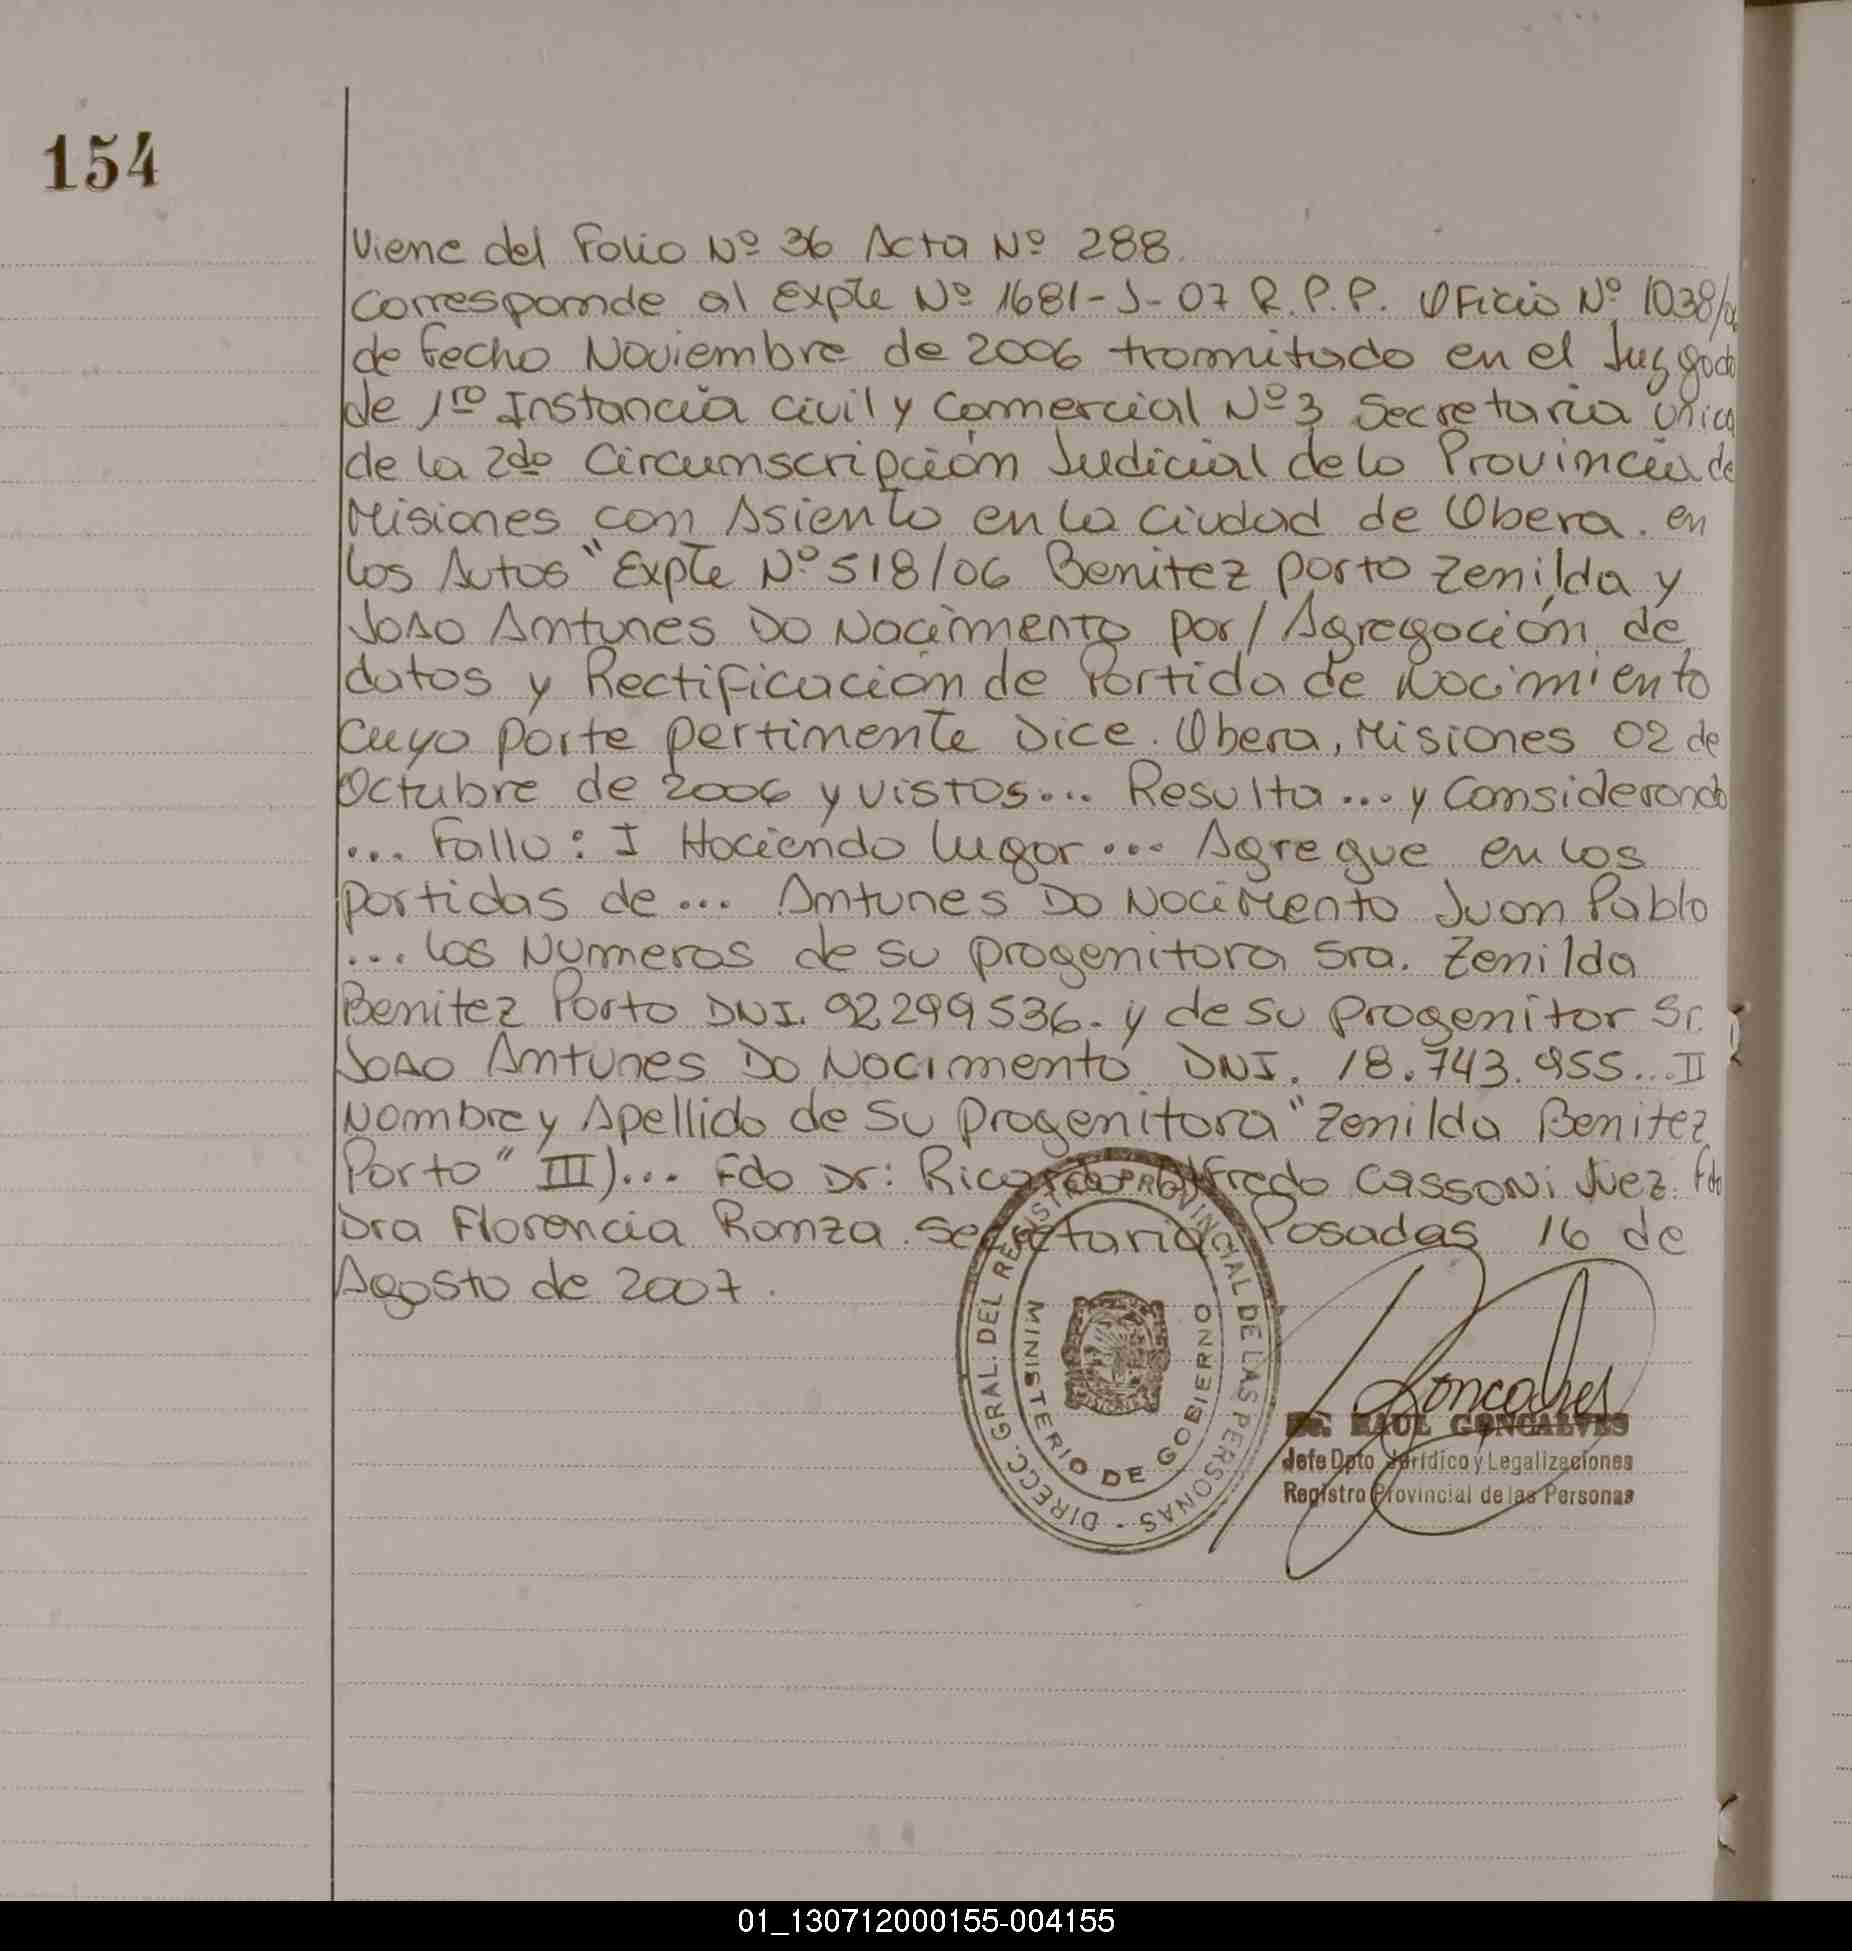 154
Viene del Folio Nº 36 Acta Nº 288.
Corresponde al Expte Nº 1681-J-07 R.P.P. Oficio Nº 1038/06
de fecha Noviembre de 2006 tramitado en el Juzgado
de 1ra Instancia Civil y Comercial Nº 3 Secretaria Unica
de la 2da Circumscripción Judicial de la Provincia de
Misiones con Asiento en la Ciudad de Obera. en
los Autos "Expte Nº 518/06 Benitez Porto Zenilda y
Joao Antunes Do Nacimento por/ Agregación de
datos y Rectificación de Partida de Nacimiento
cuya parte pertinente Dice. Obera, Misiones 02 de
Octubre de 2006 y vistos... Resulta... y Considerando
... Fallo: I Haciendo lugar... Agregue en las
partidas de... Antunes Do Nacimento Juan Pablo
... los Numeros de su progenitora Sra. Zenilda
Benitez Porto DNI. 92.299536. y de su progenitor Sr.
Joao Antunes Do Nacimento DNI. 18.743.955... II
Nombre y Apellido de su progenitora "Zenilda Benitez
Porto" III)... Fdo Dr: Ricardo Alfredo Cassoni Juez. Fdo
Dra Florencia Romza. Secretaria. Posadas 16 de
Agosto de 2007.
DIRECC. GRAL. DEL REGISTRO PROVINCIAL DE LAS PERSONAS -
MINISTERIO DE GOBIERNO
Goncalves
Dr. RAUL GONCALVES
Jefe Dpto Jurídico y Legalizaciones
Registro Provincial de las Personas
01_130712000155-004155